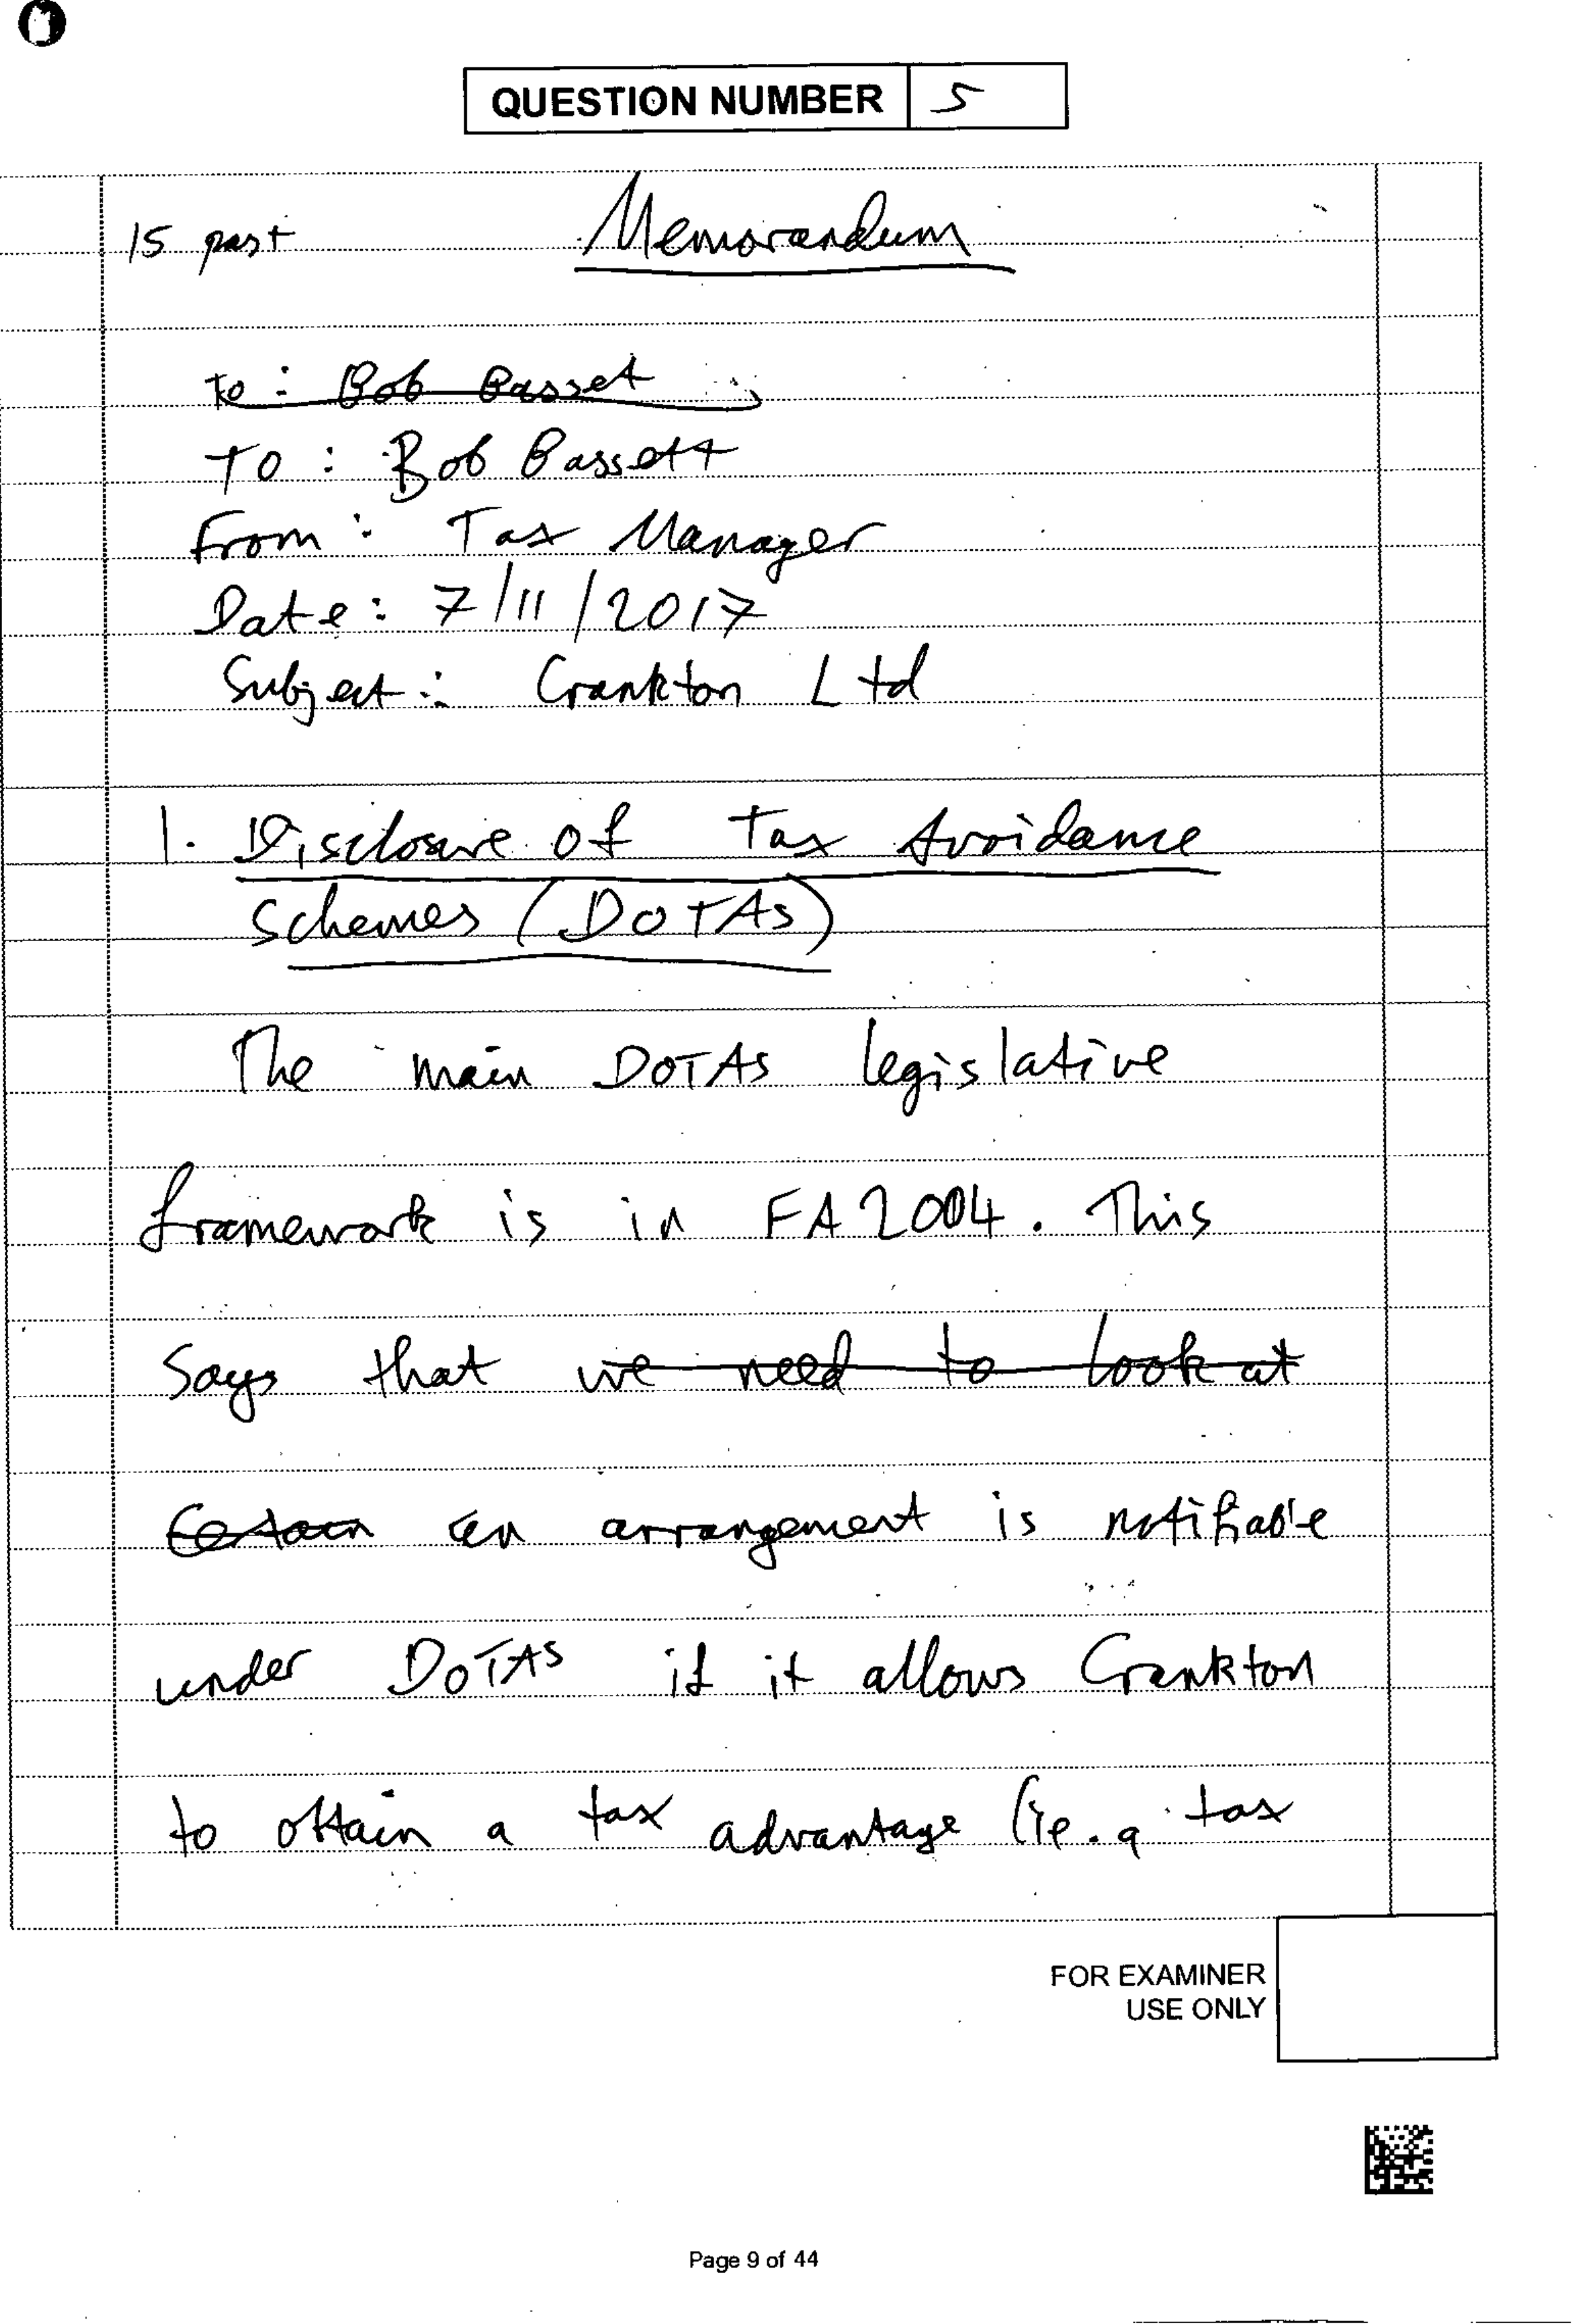 QUESTION NUMBER 5
15 past Memorandum
to : Bob Basset
To : Bob Bassett
From : Tax Manager
Date : 7/11/2017
Subject : Crankton Ltd
1. Disclosure of Tax Avoidance
Schemes (DOTAS)
The main DOTAS legislative
framework is in FA 2004. This
says that we need to look at
Certain an arrangement is notifiable
under DOTAS if it allows Crankton
to obtain a tax advantage (ie. a tax
FOR EXAMINER
USE ONLY
Page 9 of 44